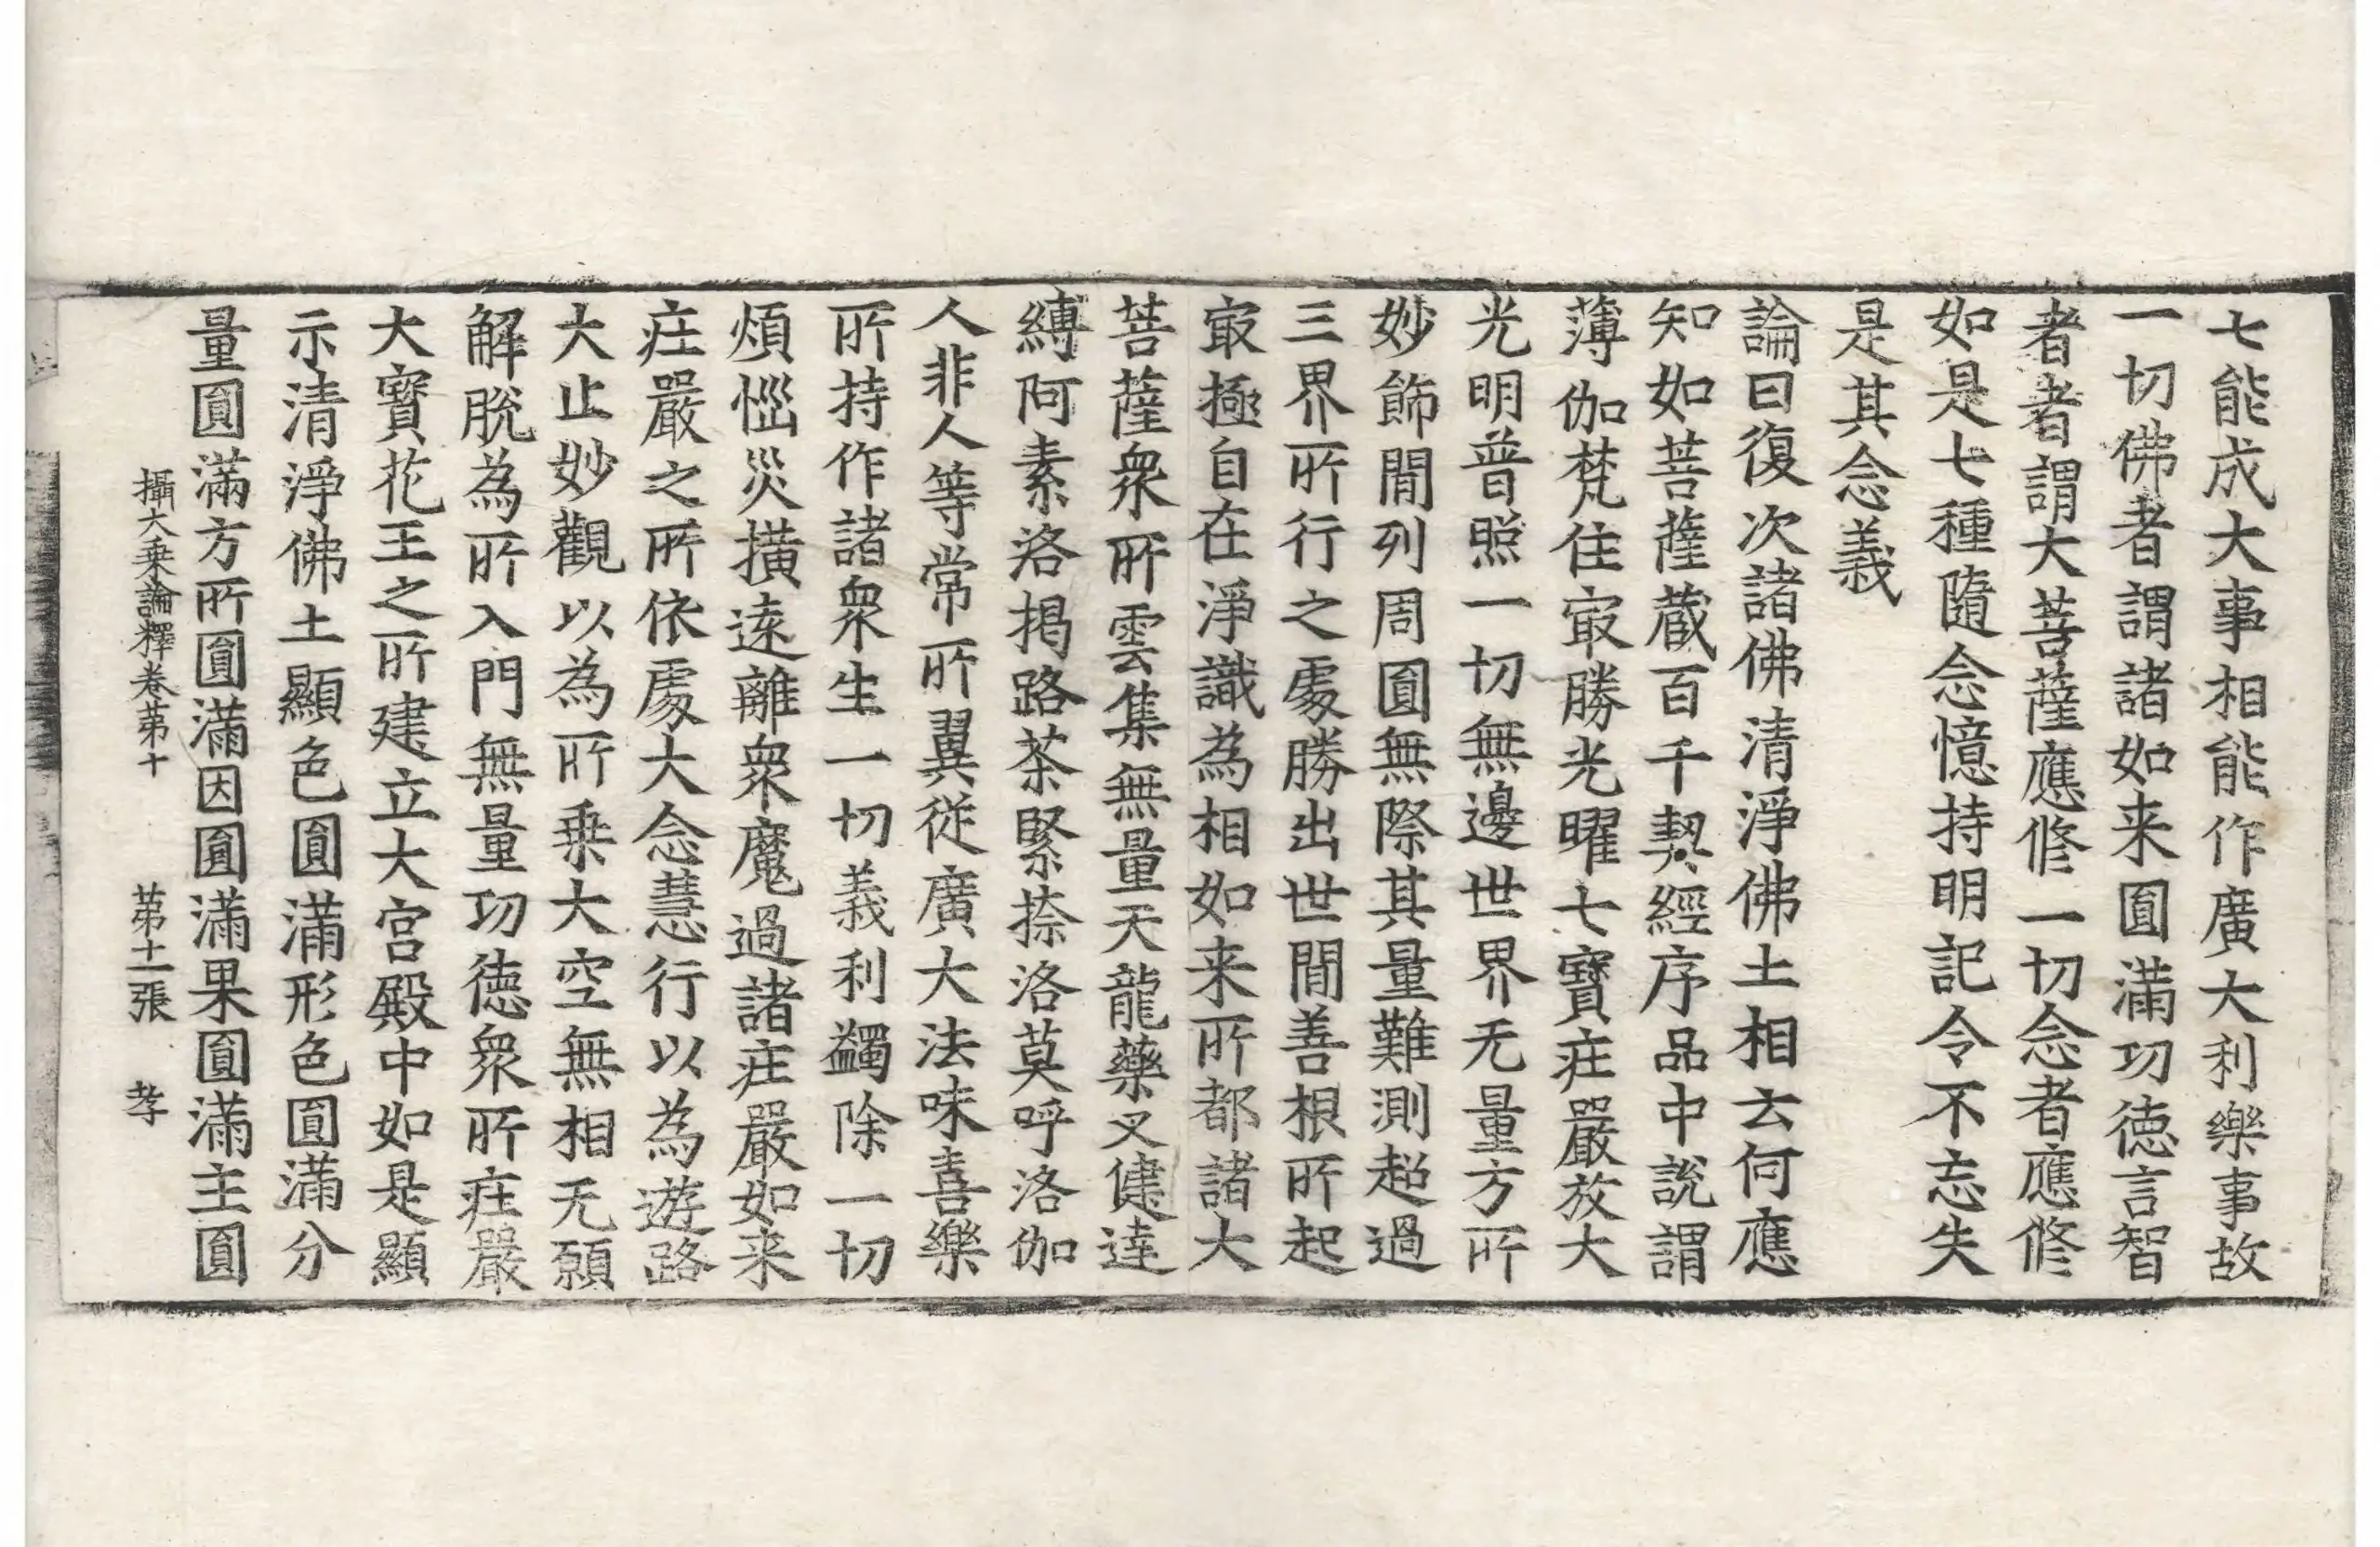 七能成大事相能作廣大利樂事故
一切佛者謂諸如来圓滿功徳言智
者者謂大菩薩應修一切念者應修
如是七種隨念憶持明記令不忘失
是其念義
論曰復次諸佛清淨佛土相云何應
知如菩薩蔵百千契經序品中說謂
薄伽梵住㝡勝光曜七寶㽵嚴放大
光明普照一切無邊世界无量方所
妙飾間列周圓無際其量難測超過
三界所行之處勝出世間善根所起
㝡極自在淨識為相如来所都諸大
菩薩衆所雲集無量天龍藥叉健達
縛阿素洛揭路荼緊捺洛莫呼洛伽
人非人等常所翼従廣大法味喜樂
所持作諸衆生一切義利蠲除一切
煩惱災撗遠離衆魔過諸㽵嚴如来
㽵嚴之所依處大念慧行以為遊路
大止妙觀以為所乗大空無相无願
解脫為所入門無量功徳衆所㽵嚴
大寶花王之所建立大宮殿中如是顯
示清淨佛土顯色圓滿形色圓滿分
量圓滿方所圓滿因圓滿果圓滿主圓
攝大乗論釋卷苐十　苐十二張　孝